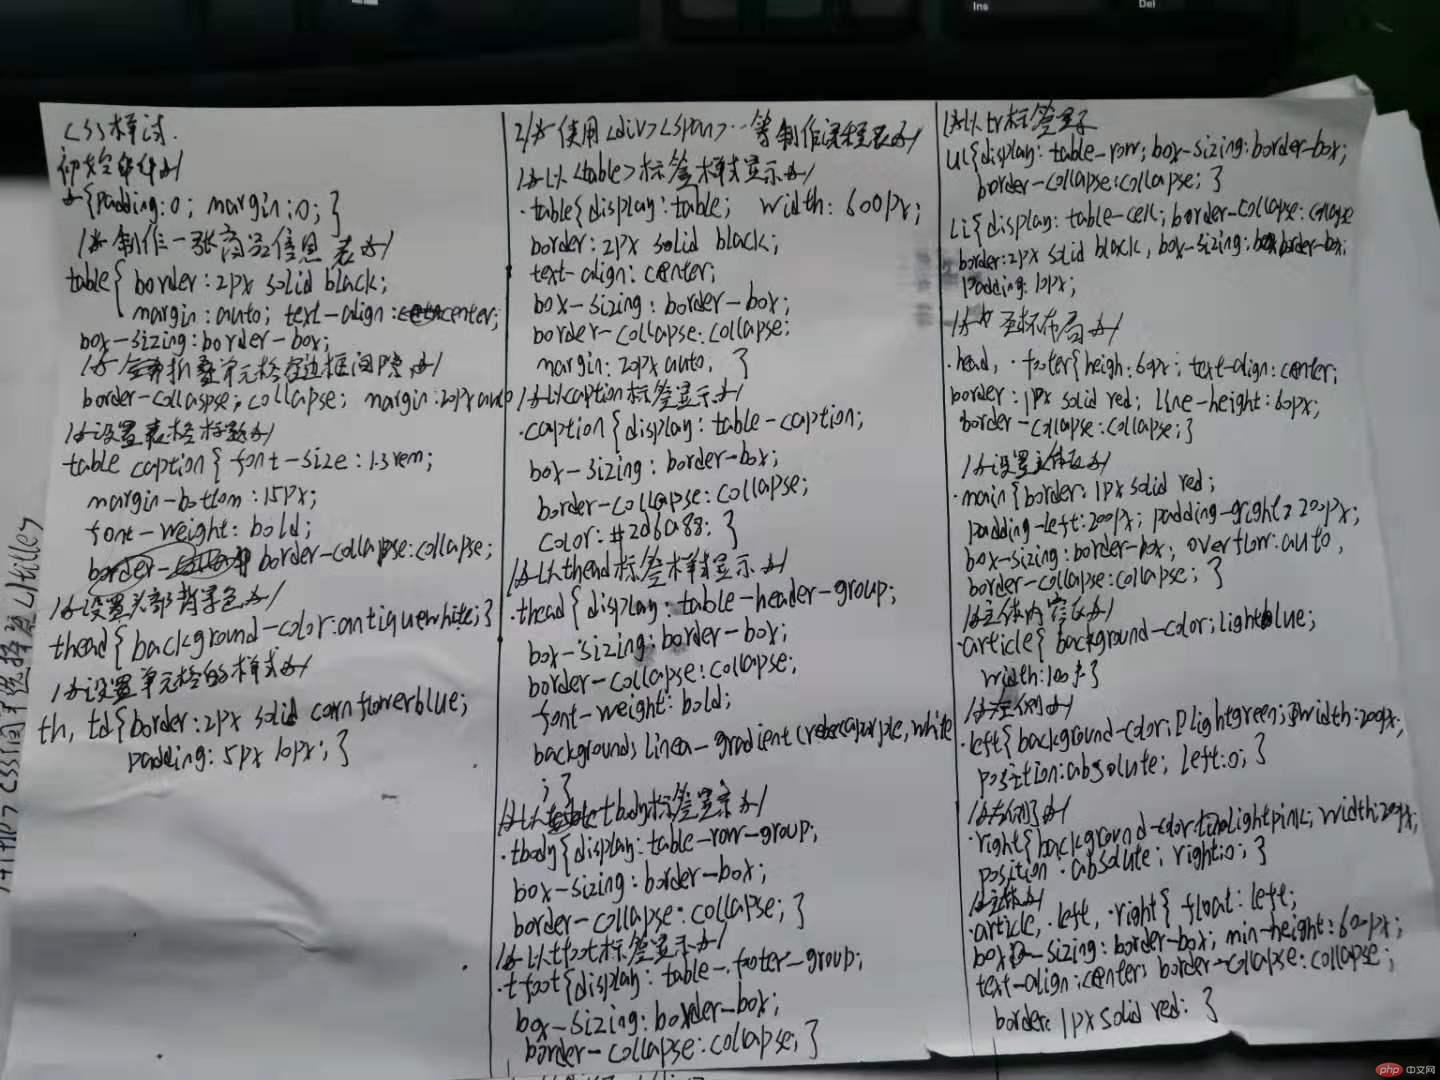 Ins
Del
css样式.
初始化*/
*{padding:0; margin:0;}
/*制作一张商品信息表*/
table{border:2px solid black;
margin:auto; text-align:center;
box-sizing:border-box;
/*折叠单元格与边框间隙*/
border-collaspse;collapse; margin:20px auto
/*设置表格标题*/
table caption{font-size:1.3rem;
margin-bottom:15px;
font-weight:bold;
border-collapse:collapse;
/*设置头部背景色*/
thead{background-color:antiquewhite;}
/*设置单元格的样式*/
th, td{border:2px solid cornflowerblue;
padding:5px 10px;}
2/*使用<div><span>…等制作课程表*/
/*以<table>标签样式显示*/
.table{display:table; width:600px;
border:2px solid black;
text-align:center;
box-sizing:border-box;
border-collapse:collapse;
margin:20px auto, }
/*以caption标签显示*/
.caption{display:table-caption;
box-sizing:border-box;
border-collapse:collapse;
color:#2d6a88;}
/*以thead标签样式显示*/
.thead{display:table-header-group;
box-sizing:border-box;
border-collapse:collapse;
font-weight:bold;
background: linea-gradient(rebeccapurple,white
;}
/*以tbody标签显示*/
.tbody{display:table-row-group;
box-sizing:border-box;
border-collapse:collapse;}
/*以tfoot标签显示*/
.tfoot{display:table-footer-group;
box-sizing:border-box;
border-collapse:collapse;}
/*以tr标签显示
ul{display:table-row;box-sizing:border-box;
border-collapse:collapse;}
Li{display:table-cell;border-collapse:collapse
border:2px solid black, box-sizing:border-box;
padding:10px;
/*圣杯布局*/
.head, .footer{heigh:60px; text-align:center;
border:1px solid red; line-height:60px;
border-collapse:collapse;}
/*设置主体区*/
.main{border:1px solid red;
padding-left:200px; 200px;
box-sizing:border-box, overflow:auto,
border-collapse:collapse;}
/*主体内容区*/
.article{background-color;lightblue;
width:100%}
/*左侧*/
.left{background-color; lightgreen; width:200px,
position:absolute; left:0;}
/*右侧*/
.right{background-color: lightpink; width:200px;
position:absolute; right:0;}
/*主体*/
.article, .left, .right{float:left;
box-sizing:border-box; min-height:600px;
text-align:center; border-collapse:collapse;
border:1px solid red;}
php 中文网